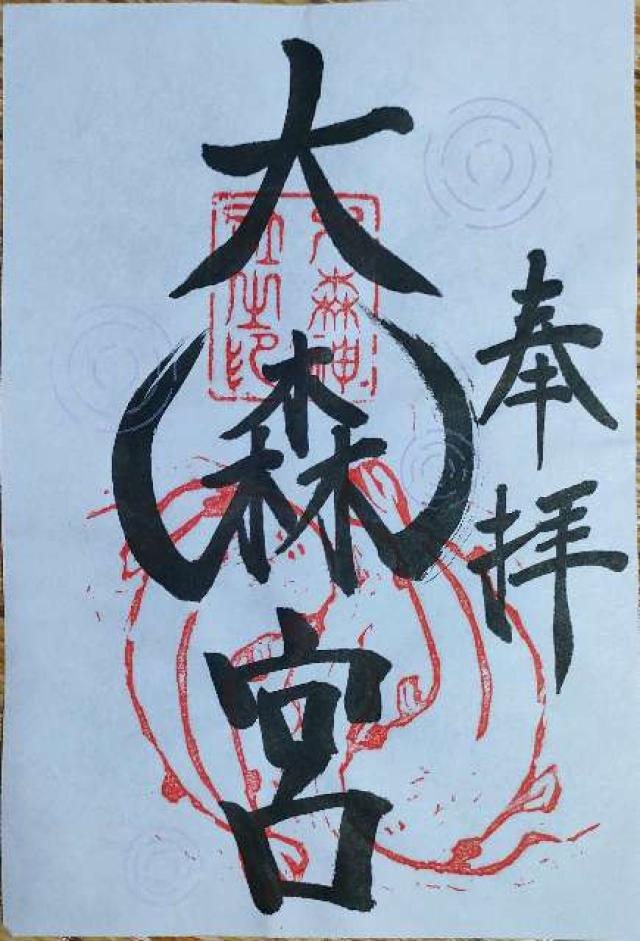 奉拝
大森宮
大森神
社之印